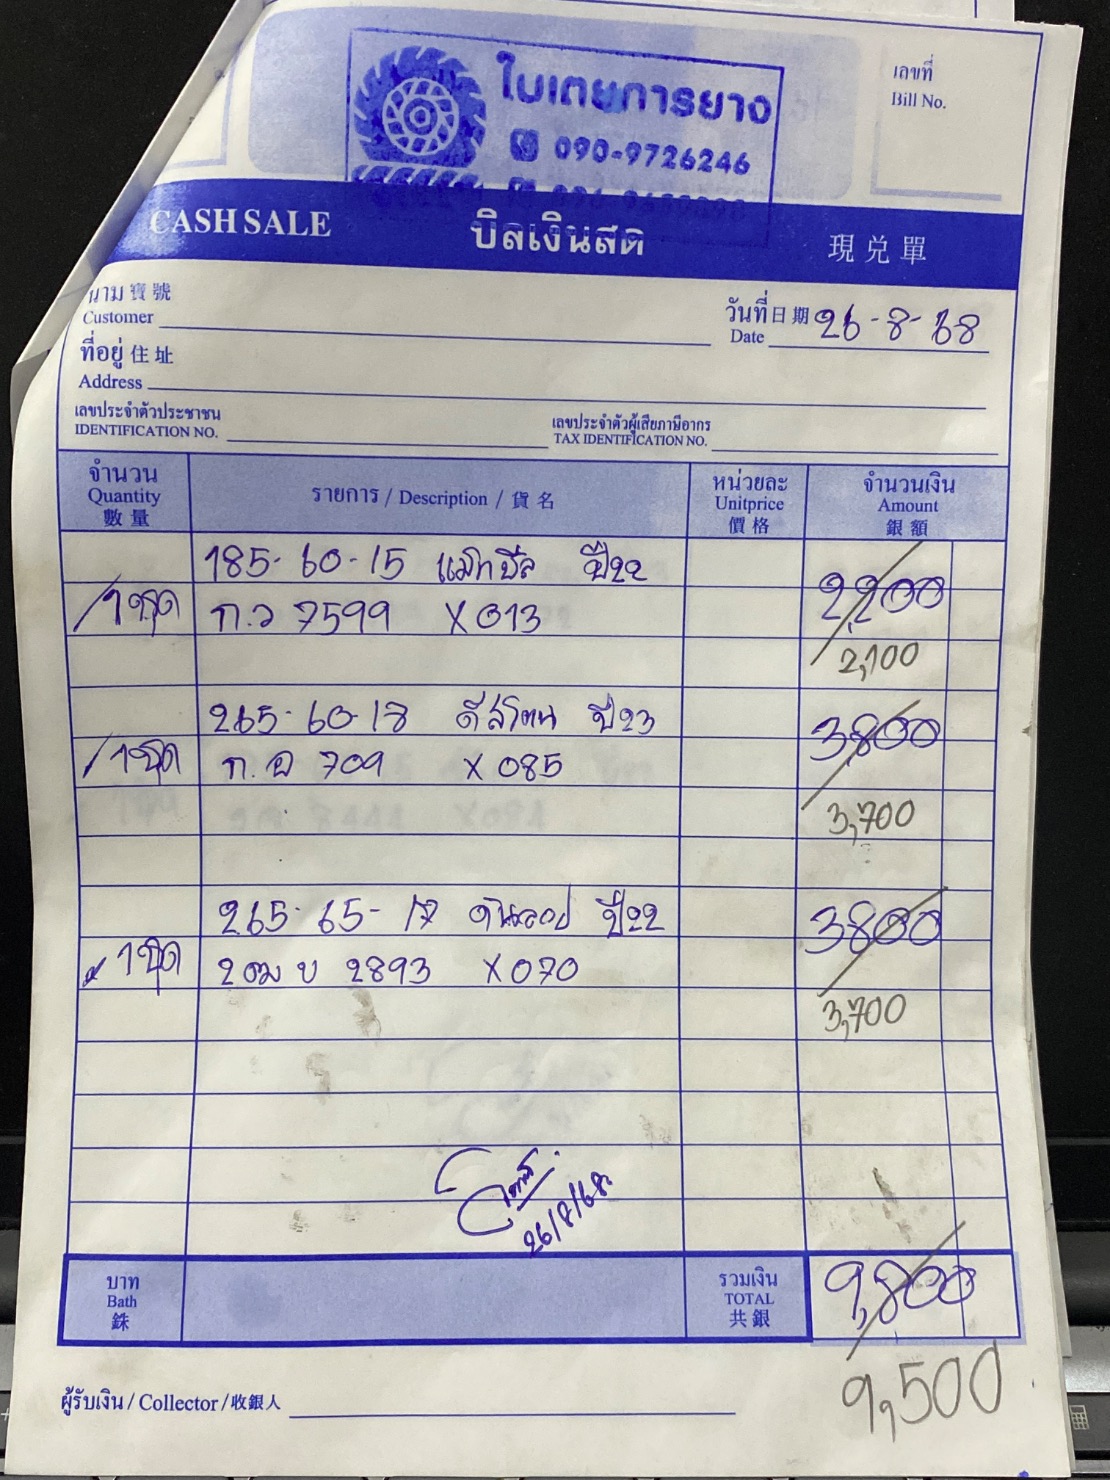 ใบเตยการยาง
090-9726246
เลขที่
Bill No.
CASH SALE บิลเงินสด 現兑單
นาม 寶號
Customer
วันที่ 日期 26-8-68
Date
ที่อยู่ 住址
Address
เลขประจำตัวประชาชน
IDENTIFICATION NO.
เลขประจำตัวผู้เสียภาษีอากร
TAX IDENTIFICATION NO.
จำนวน
Quantity
數量
รายการ / Description / 貨名
หน่วยละ
Unitprice
價格
จำนวนเงิน
Amount
銀額
185-60-15 แม็กซีส ปี22
1ชุด ก.ว 7599 X013 2,200
2,100
265-60-18 ดีสโตน ปี23 3,800
1ชุด ก.อ 709 X085
3,700
265-65-17 ดันลอป ปี22 3800
1ชุด 2ฒบ 2893 X070
3,700
26/8/68
บาท
Bath
銖
รวมเงิน
TOTAL
共銀
9,800
9,500
ผู้รับเงิน / Collector / 收銀人